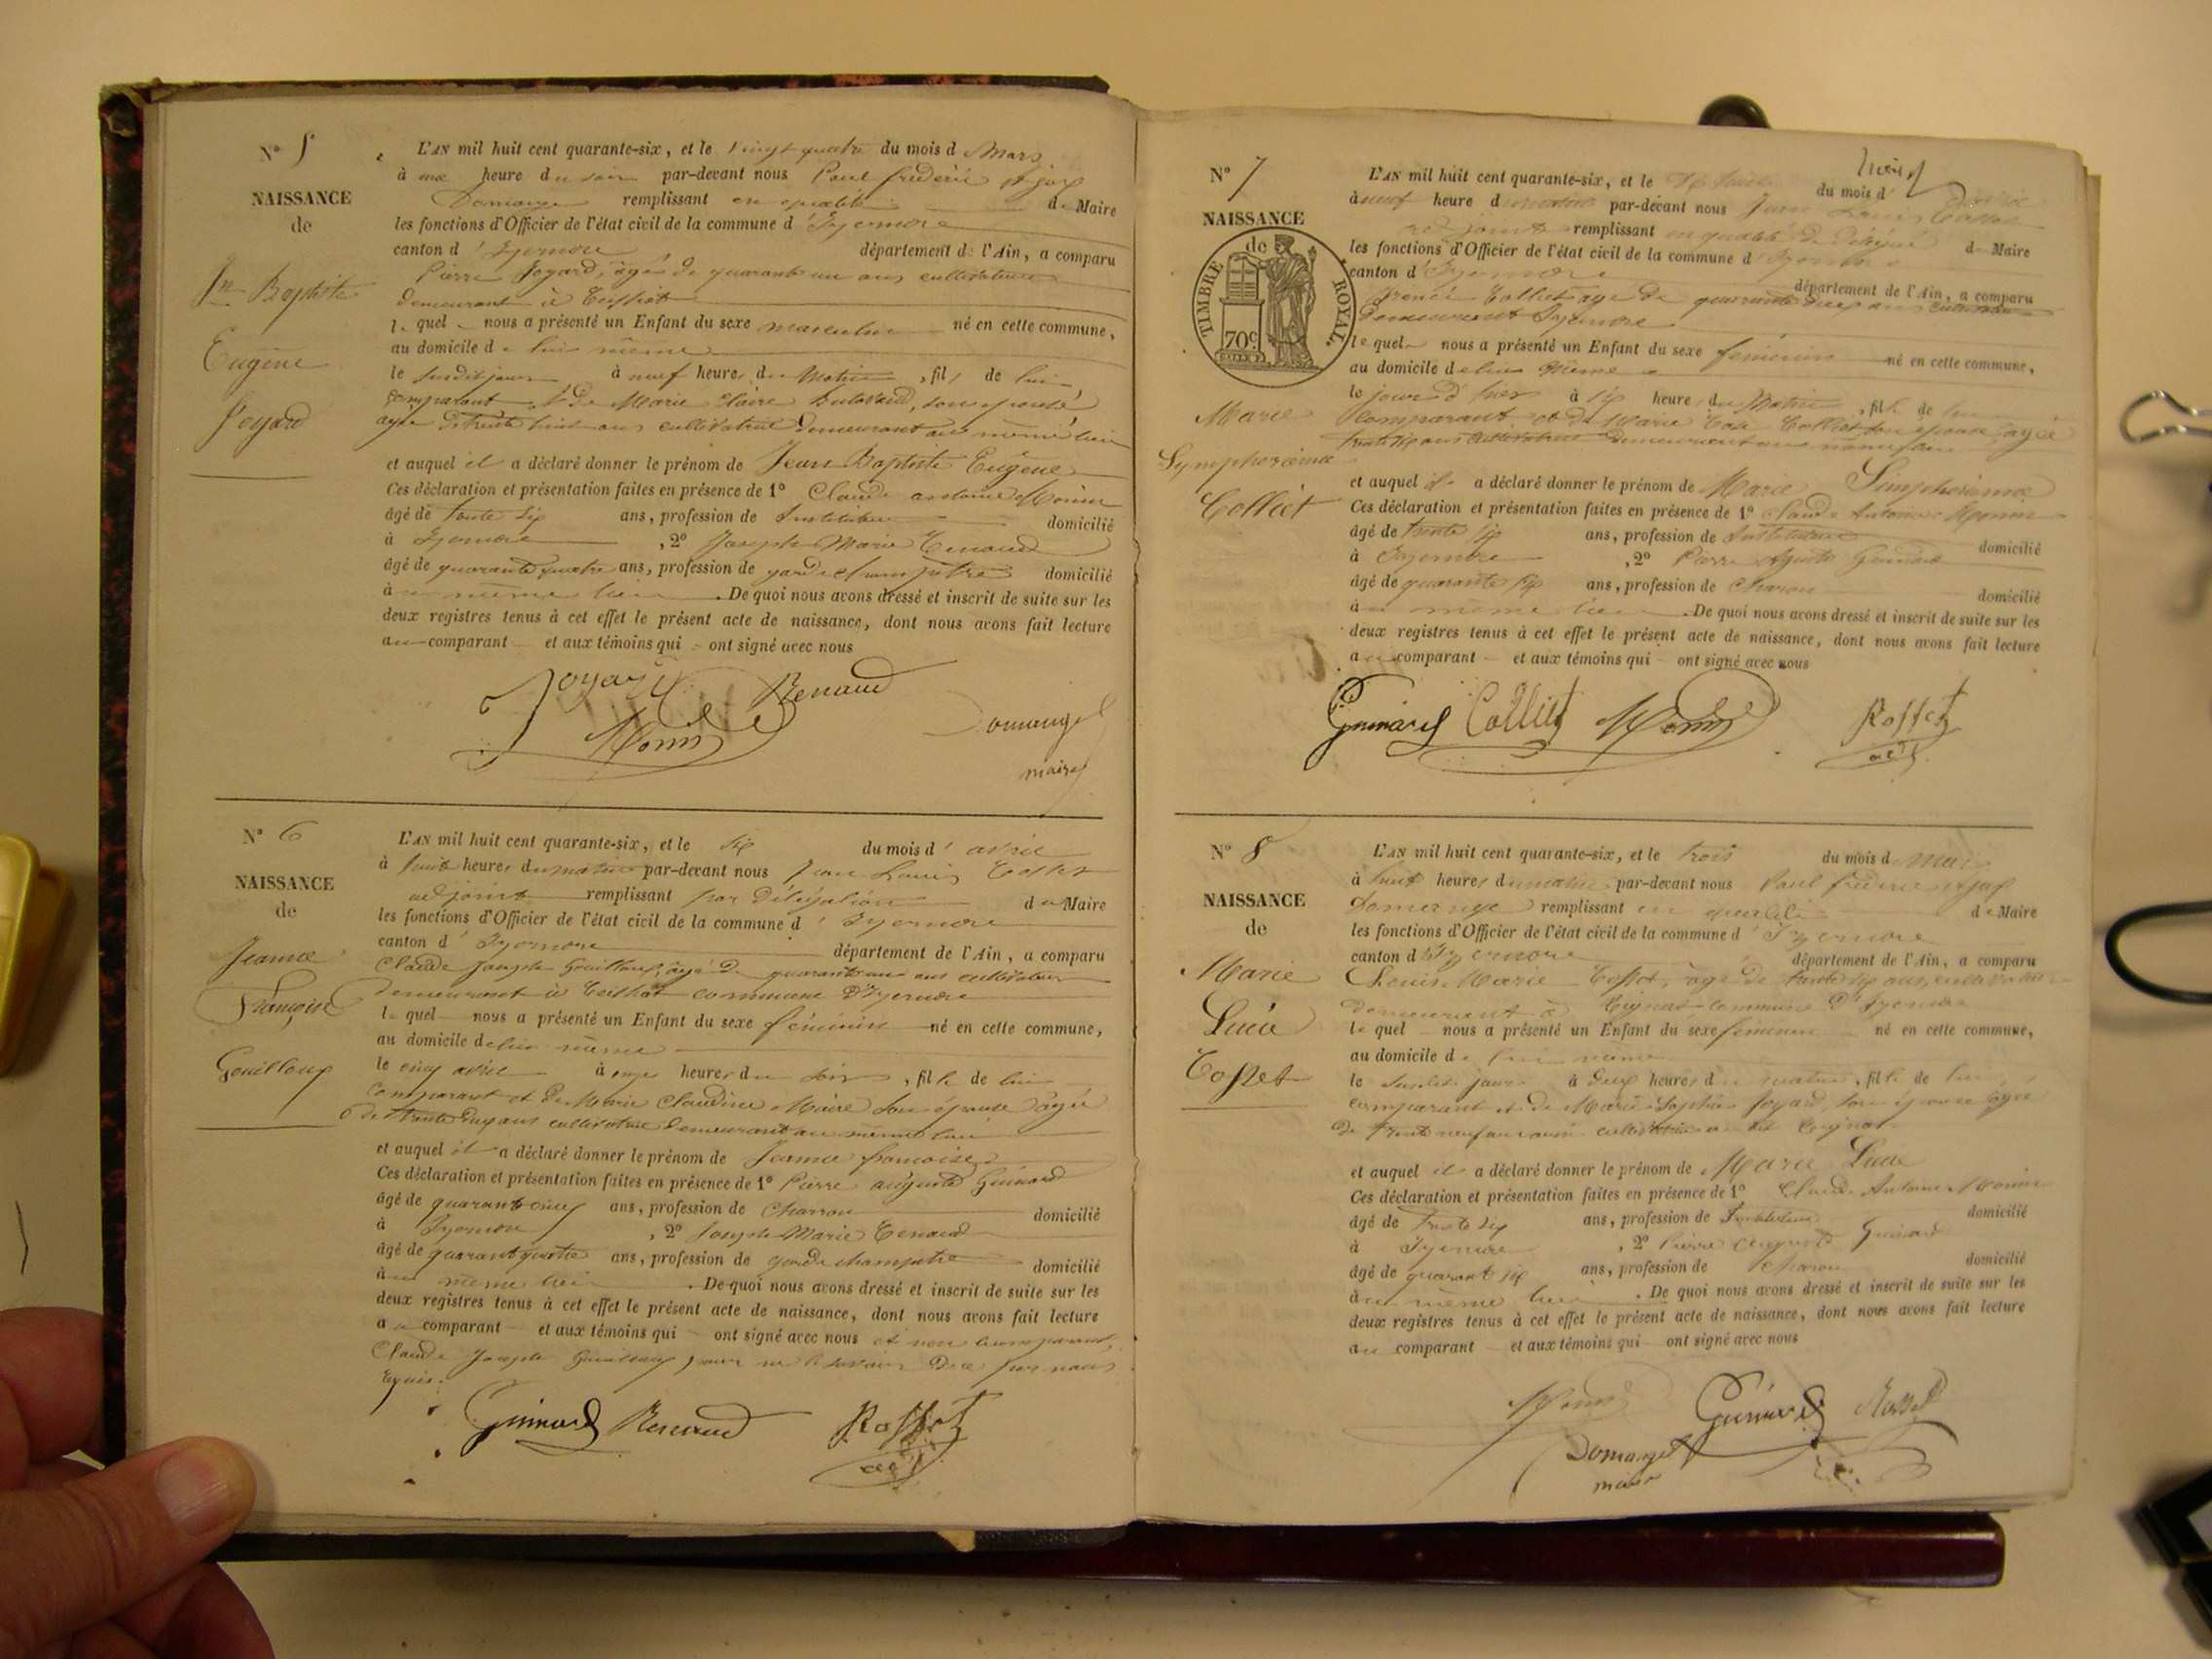 N° 5
NAISSANCE
de
Jn Baptiste
Eugène
Joyard
L'AN mil huit cent quarante-six, et le vingt quatre du mois d Mars
à une heure du soir par-devant nous Paul frédéric
Domange remplissant en qualité de Maire
les fonctions d'Officier de l'état civil de la commune d'Izernore
canton d'Izernore département de l'Ain, a comparu
Pierre Joyard, âgé de quarante un ans cultivateur
demeurant à Ceissiat
lequel nous a présenté un Enfant du sexe masculin né en cette commune,
au domicile de lui même
le susdit jour à neuf heures du Matin, fils de lui
comparant et de Marie Claire son épouse
agée de trente huit ans cultivatrice demeurant au même lieu
et auquel il a déclaré donner le prénom de Jean Baptiste Eugène
Ces déclaration et présentation faites en présence de 1° Claude antoine Monin
âgé de trente six ans, profession de Instituteur domicilié
à Izernore, 2° Joseph Marie Renaud
âgé de quarante quatre ans, profession de garde champêtre domicilié
au même lieu. De quoi nous avons dressé et inscrit de suite sur les
deux registres tenus à cet effet le présent acte de naissance, dont nous avons fait lecture
au comparant et aux témoins qui ont signé avec nous
Joyard Renaud
Monin
Domange
maire
N° 6
NAISSANCE
de
Jeanne
Françoise
Gouilloux
L'AN mil huit cent quarante-six, et le six du mois d'avril
à huit heures du matin par-devant nous Jean Louis
adjoint remplissant par Délégation du Maire
les fonctions d'Officier de l'état civil de la commune d'Izernore
canton d'Izernore département de l'Ain, a comparu
Claude Joseph Gouilloux, âgé de quarante un ans cultivateur
demeurant à Ceissiat commune D'Izernore
lequel nous a présenté un Enfant du sexe féminin né en cette commune,
au domicile de lui même
le cinq avril à onze heures du soir, fille de lui
comparant et de Marie Claudine Maire son épouse âgée
de trente cinq ans cultivatrice demeurant au même lieu
et auquel il a déclaré donner le prénom de Jeanne françoise
Ces déclaration et présentation faites en présence de 1° Pierre auguste Guinard
âgé de quarante ans, profession de Charron domicilié
à Izernore, 2° Joseph Marie Renaud
âgé de quarante quatre ans, profession de garde champêtre domicilié
au même lieu. De quoi nous avons dressé et inscrit de suite sur les
deux registres tenus à cet effet le présent acte de naissance, dont nous avons fait lecture
au comparant et aux témoins qui ont signé avec nous et non le comparant
Claude Joseph Gouilloux pour ne le savoir De ce par nous
requis.
Guinard Renaud Rosset
adj
N° 7
NAISSANCE
de
TIMBRE ROYAL.
70c
Marie
Symphorine
Colliet
L'AN mil huit cent quarante-six, et le du mois d'
à neuf heures du matin par-devant nous Jean Louis
adjoint remplissant en qualité de délégué du Maire
les fonctions d'Officier de l'état civil de la commune d'Izernore
canton d'Izernore département de l'Ain, a comparu
Colliet âgé de quarante ans cultivateur
Demeurant Izernore
lequel nous a présenté un Enfant du sexe féminin né en cette commune,
au domicile de lui même
le jour d'hier à six heures du Matin, fille de lui
Comparant et de Marie Colliet son épouse agée
trente six ans cultivatrice demeurant au même lieu
et auquel il a déclaré donner le prénom de Marie Simphorine
Ces déclaration et présentation faites en présence de 1° Claude Antoine Monin
âgé de trente six ans, profession de Instituteur domicilié
à Izernore, 2° Pierre Guinard
âgé de quarante six ans, profession de Charon domicilié
au même lieu. De quoi nous avons dressé et inscrit de suite sur les
deux registres tenus à cet effet le présent acte de naissance, dont nous avons fait lecture
au comparant et aux témoins qui ont signé avec nous
Guinard Colliet Monin Rosset
adj
N° 8
NAISSANCE
de
Marie
Lucie
Cosset
L'AN mil huit cent quarante-six, et le trois du mois d Mai
à huit heures du matin par-devant nous Paul frédéric
Domange remplissant en qualité de Maire
les fonctions d'Officier de l'état civil de la commune d'Izernore
canton d'Izernore département de l'Ain, a comparu
Louis Marie Cosset, âgé de trente six ans, cultivateur
demeurant à commune d'Izernore
lequel nous a présenté un Enfant du sexe féminin né en cette commune,
au domicile de lui même
le susdit jour à deux heures du matin, fille de lui
comparant et de Marie Sophie Joyard, son épouse agée
de trente neuf ans cultivatrice
et auquel il a déclaré donner le prénom de Marie Lucie
Ces déclaration et présentation faites en présence de 1° Claude Antoine Monin
âgé de trente six ans, profession de Instituteur domicilié
à Izernore, 2° Pierre Auguste Guinard
âgé de quarante six ans, profession de Charon domicilié
au même lieu. De quoi nous avons dressé et inscrit de suite sur les
deux registres tenus à cet effet le présent acte de naissance, dont nous avons fait lecture
au comparant et aux témoins qui ont signé avec nous
Monin Guinard Rosset
Domange
maire